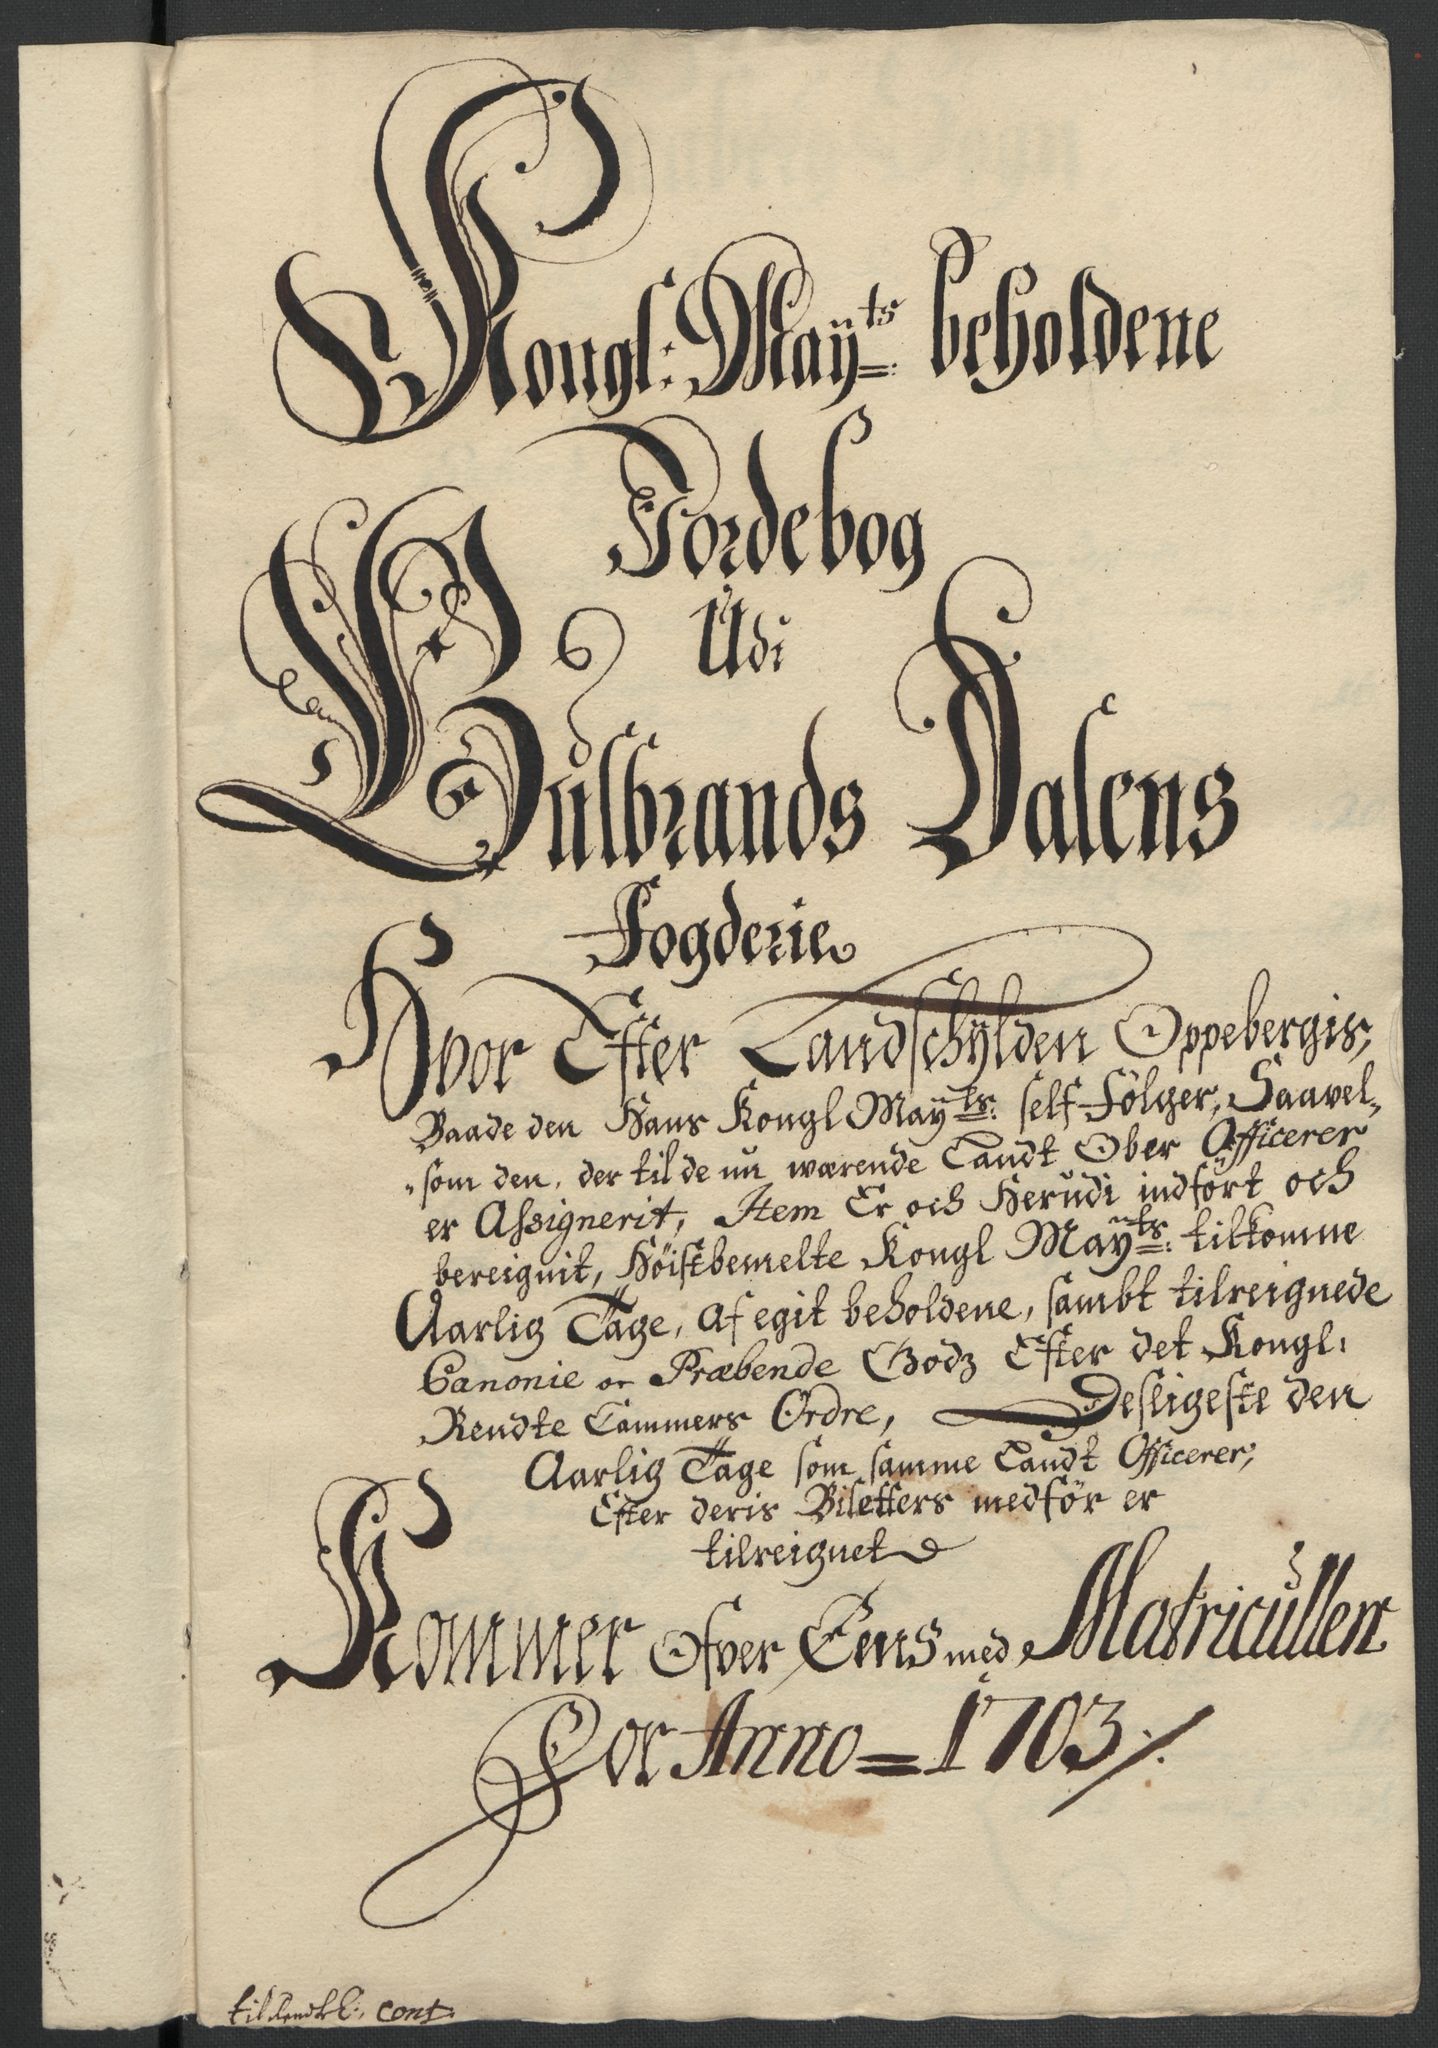 Kongl: Maÿts: beholdene
Jordebog
Udi
Gulbrands Dalens
Fogderie
Hvor Efter Landschÿlden Oppebergis,
Baade den Hans Kongl Maÿts: self Fölger, Saavel-
-som den, der til de nu wærende Landt Ober Officerer
er Assignerit, Item Er och Herudi indfört och
bereignit, Höistbemelte Kongl Maÿts: tilkomne
Aarlig Tage, af egit beholdene, sambt tilreignede
Canonie or Præbende Godz Efter det Kongl:
Rendte Cammers Ordre, Desligeste den
Aarlig Tage som samme Landt Officerer,
Efter deris Biletters medför er
tilreignet
Kommer Ofver Eens med Matricullen
For Anno = 1703 /.
til Rendtk: cont